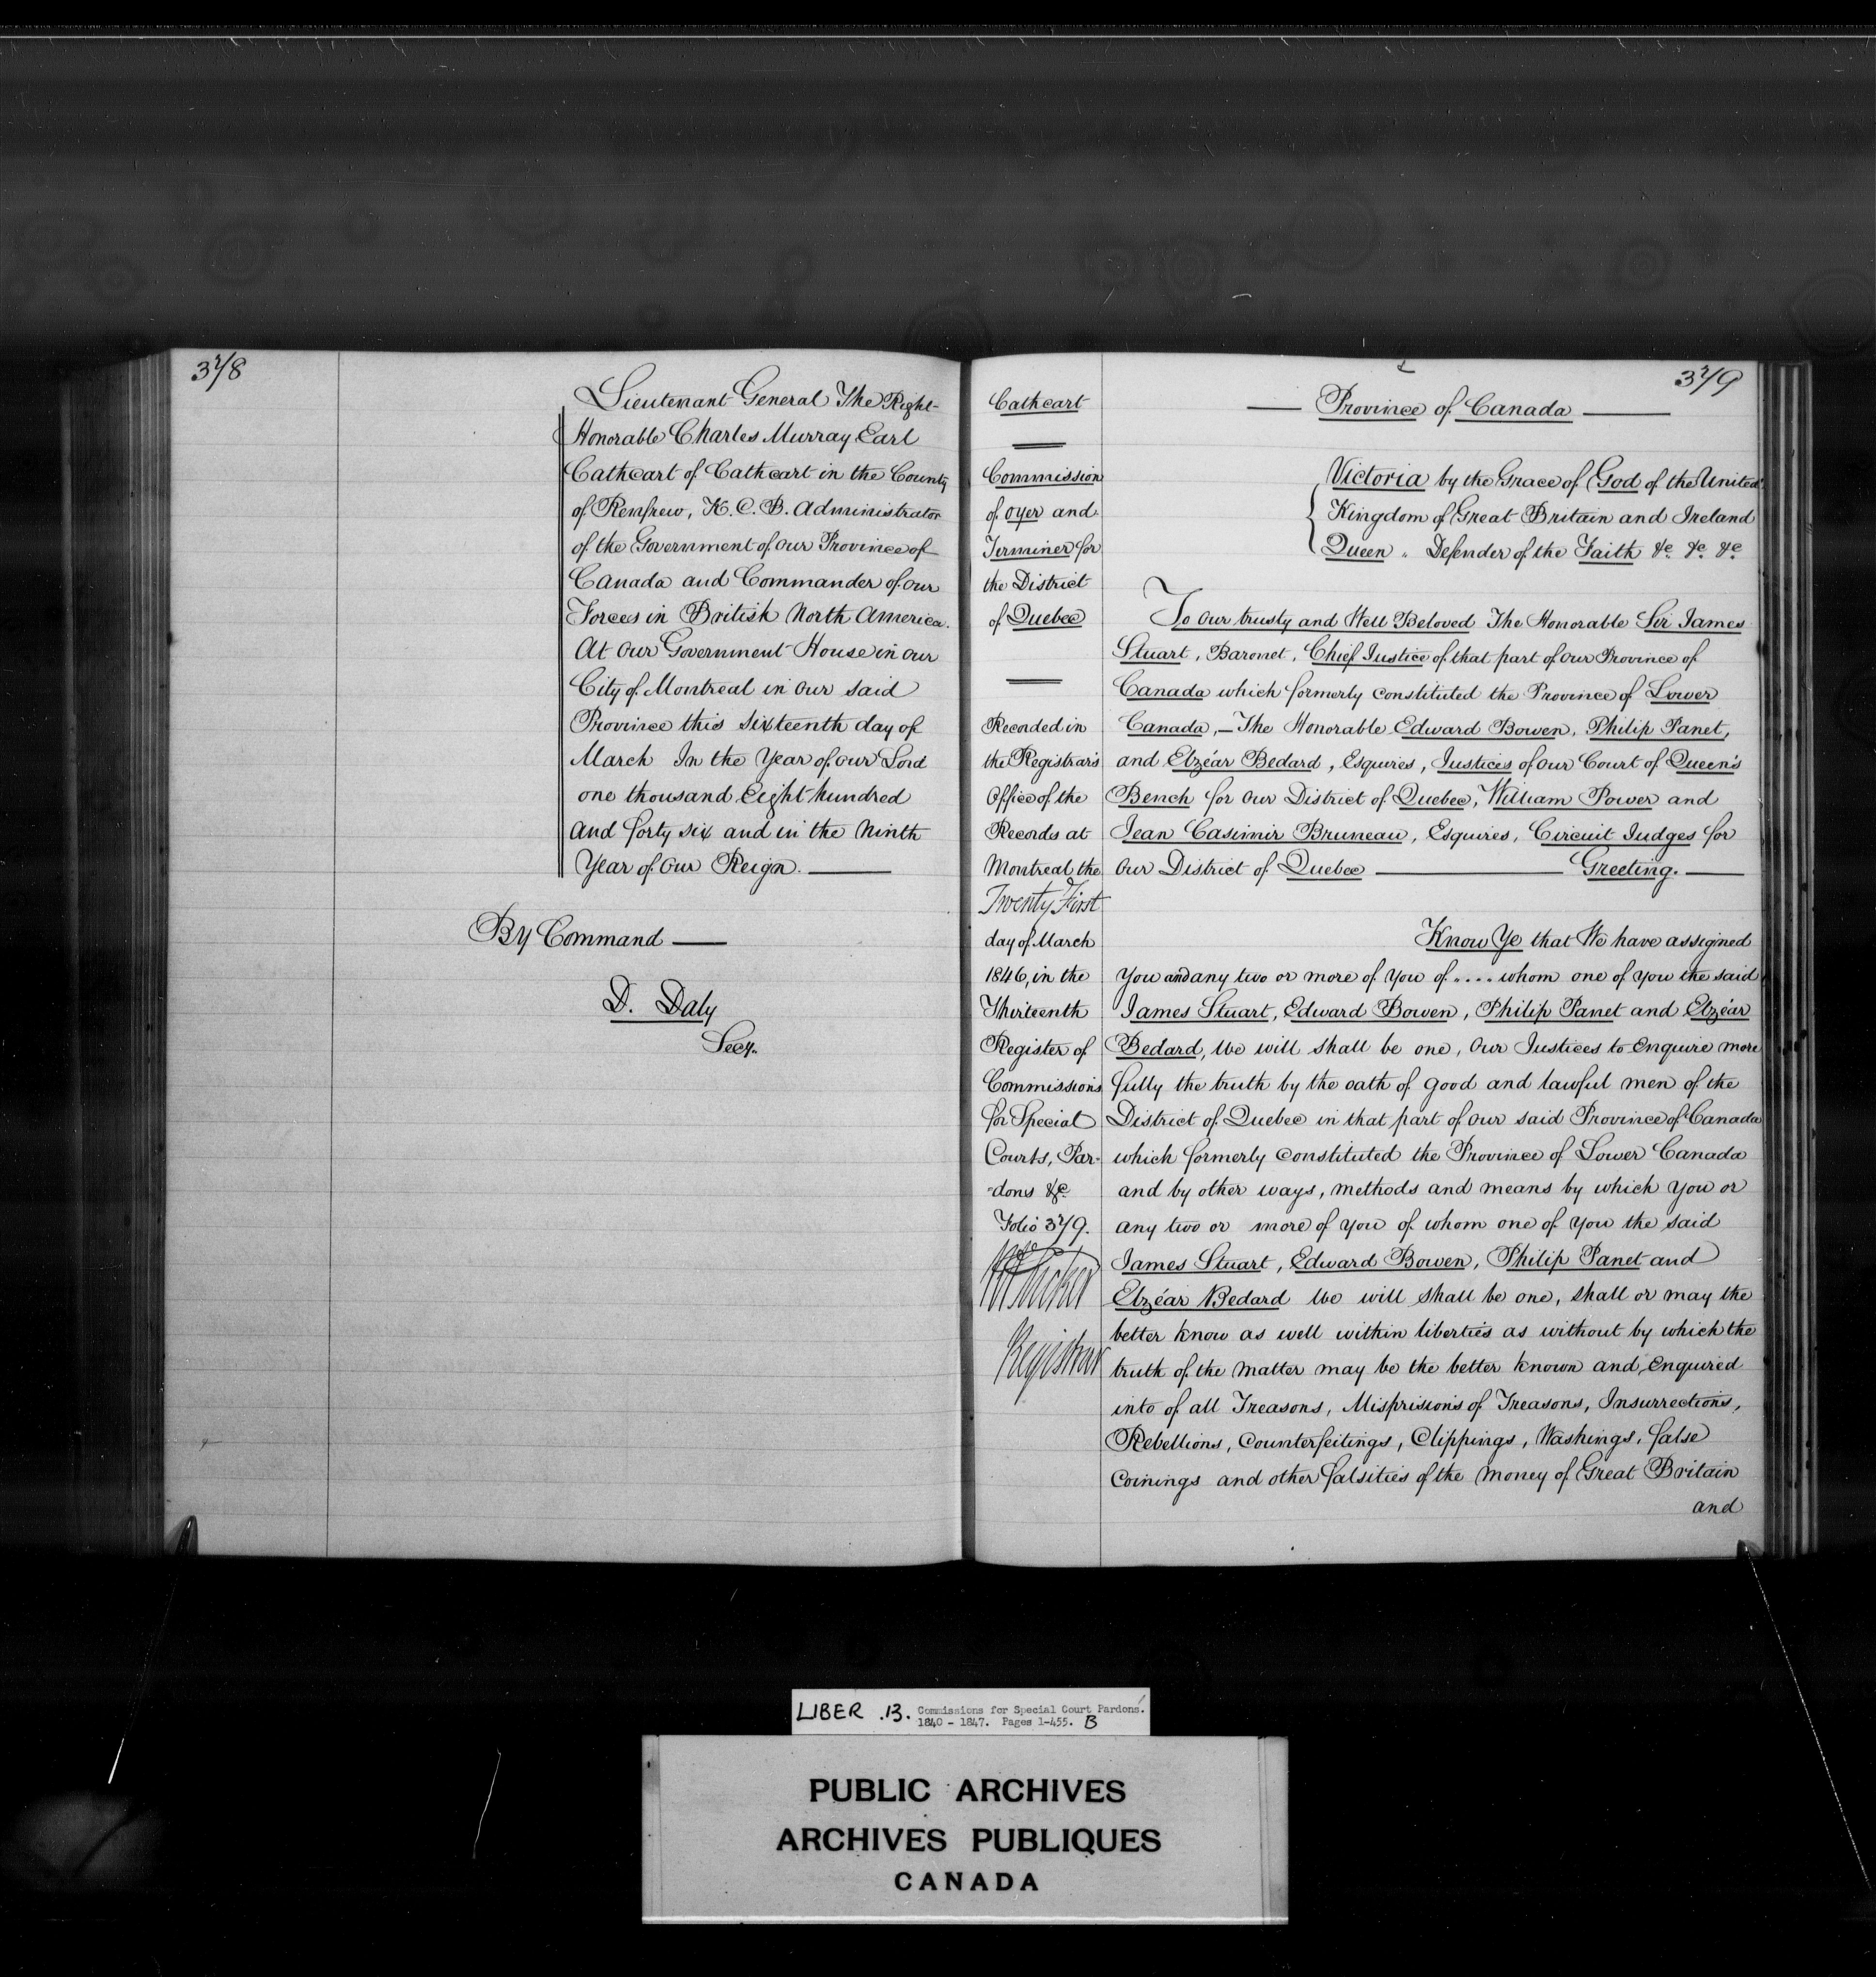 378
Lieutenant General The Right
Honorable Charles Murray Earl
Cathcart of Cathcart in the County
of Renfrew, K. C. B. Administrator
of the Government of our Province of
Canada and Commander of our
Forces in British North America.
At our Government House in our
City of Montreal in our said
Province this sixteenth day of
March In the Year of our Lord
one thousand Eight hundred
and forty six and in the Ninth
Year of our Reign.
By Command
D. Daly
Secy.
379
Cathcart
Commission
of oyer and
Terminer for
the District
of Quebec
Recorded in
the Registrar's
Office of the
Records at
Montreal the
Twenty First
day of March
1846, in the
Thirteenth
Register of
Commissions
for Special
Courts, Par-
-dons &c
Folio 379.
Registrar
Province of Canada
Victoria by the Grace of God of the United
Kingdom of Great Britain and Ireland
Queen „ Defender of the Faith &c. &c. &c
To our trusty and Well Beloved The Honorable Sir James
Stuart, Baronet, Chief Justice of that part of our Province of
Canada which formerly constituted the Province of Lower
Canada,—The Honorable Edward Bowen, Philip Panet,
and Elzéar Bedard, Esquires, Justices of our Court of Queen's
Bench for our District of Quebec, William Power and
Jean Casimir Bruneau, Esquires, Circuit Judges for
our District of Quebec Greeting.
Know Ye that We have assigned
You and any two or more of You of .... whom one of you the said
James Stuart, Edward Bowen, Philip Panet and Elzéar
Bedard, We will shall be one, our Justices to Enquire more
fully the truth by the oath of good and lawful men of the
District of Quebec in that part of our said Province of Canada
which formerly constituted the Province of Lower Canada
and by other ways, methods and means by which You or
any two or more of You of whom one of You the said
James Stuart, Edward Bowen, Philip Panet and
Elzéar Bedard We will shall be one, shall or may the
better know as well within liberties as without by which the
truth of the matter may be the better known and, enquired
into of all Treasons, Misprisions of Treasons, Insurrections,
Rebellions, Counterfeitings, Clippings, Washings, false
Coinings and other falsities of the money of Great Britain
and
LIBER .13. Commissions for Special Court Pardons.
1840 - 1847. Pages 1-455. B
PUBLIC ARCHIVES
ARCHIVES PUBLIQUES
CANADA